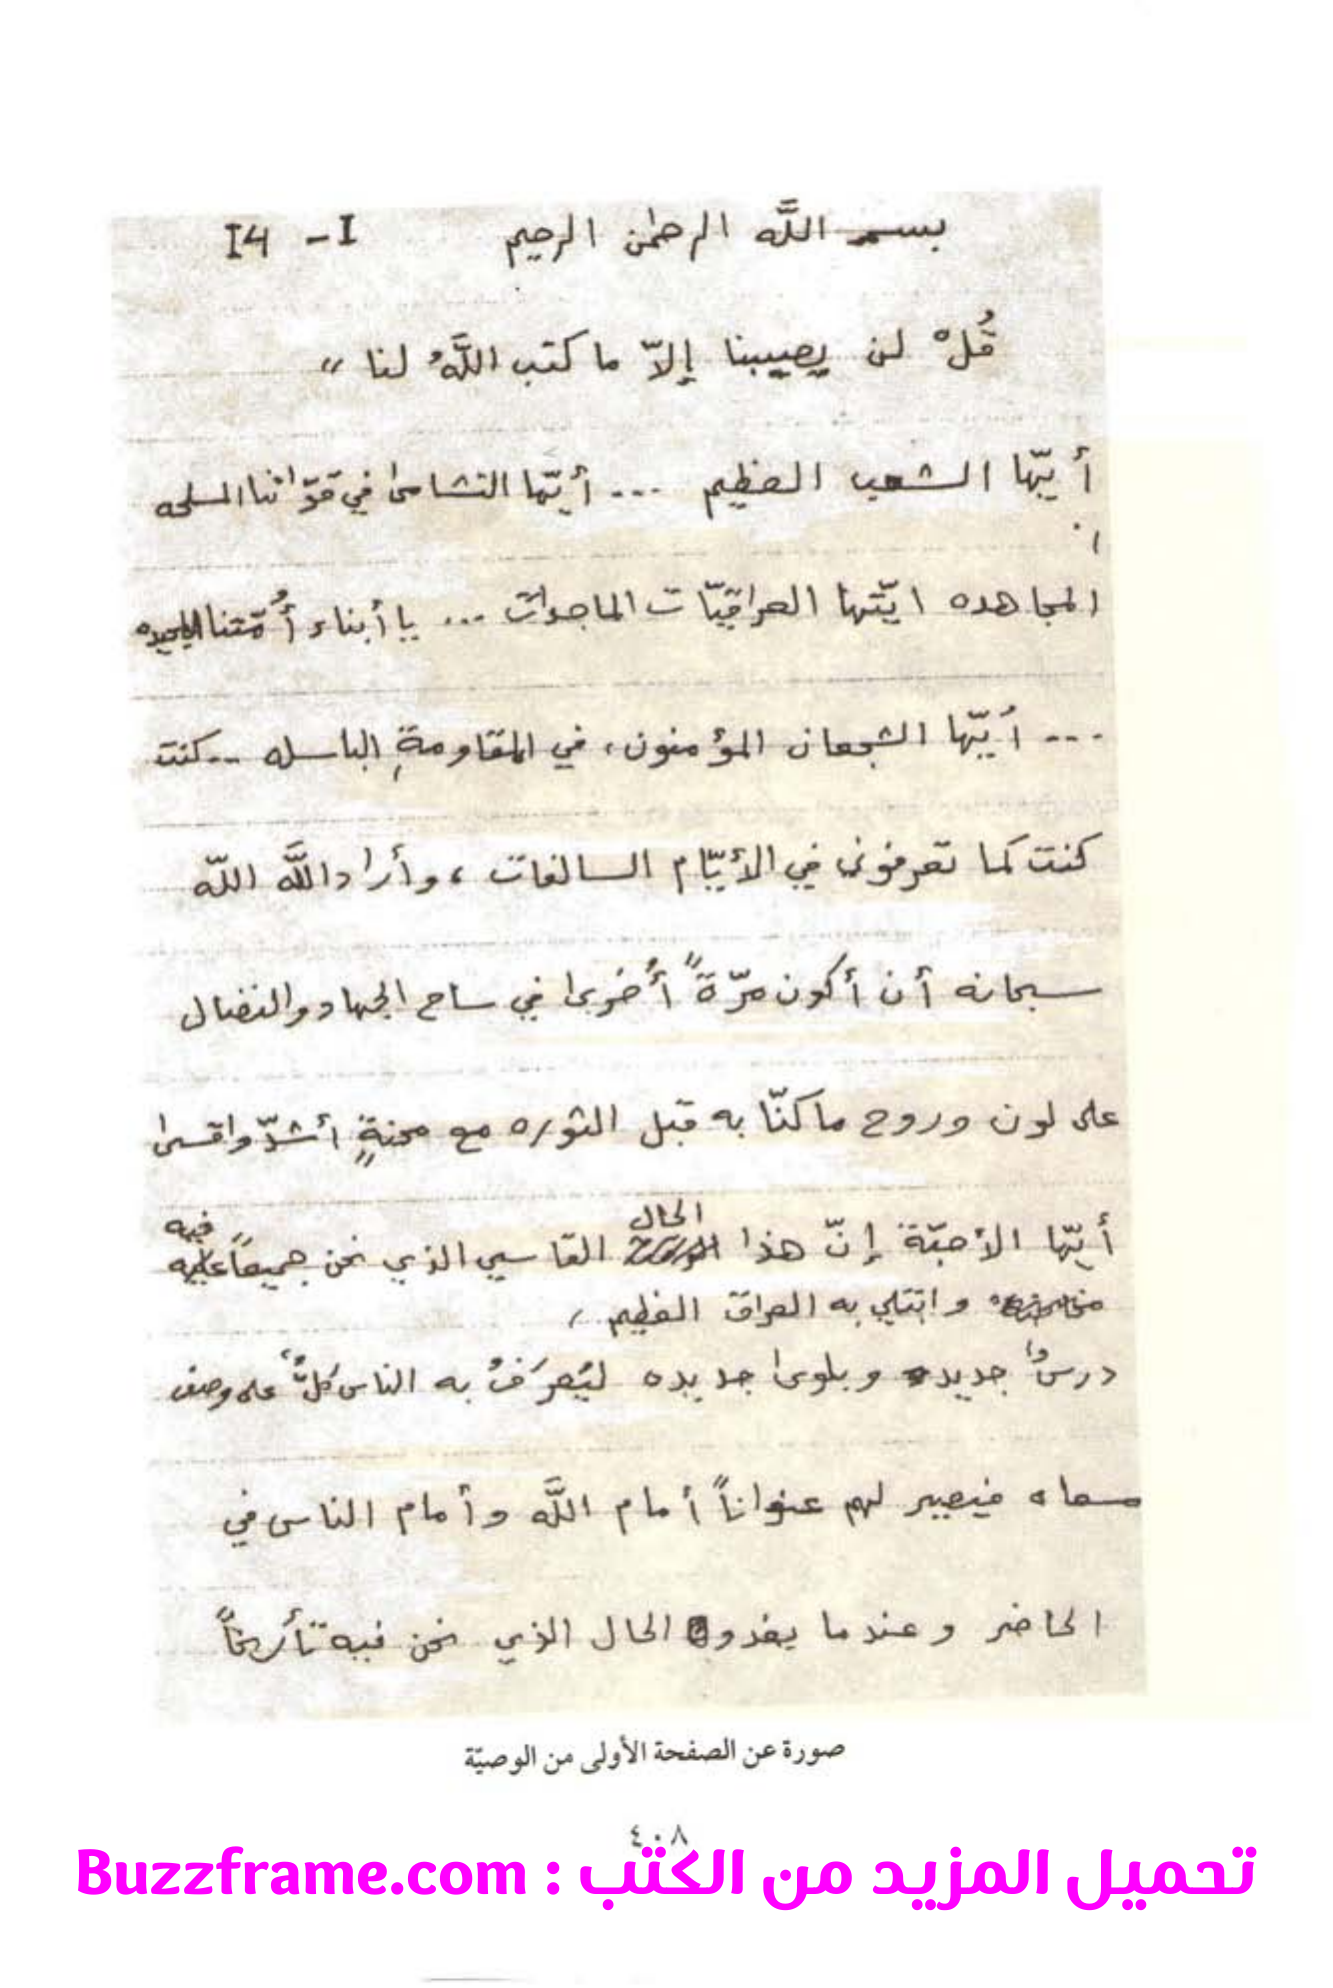 بسم اللَّه الرحمٰن الرحيم I - I4
قُلْ لن يصيبنا إلاّ ما كتب اللَّهُ لنا "
أيّها الشعب العظيم ... أيّها النشامى في قوّاتنا المسلحه
المجاهده ايّتها العراقيّات الماجدات ... يا أبناء أُمّتنا المجيده
... أيّها الشجعان المؤمنون، في المقاومةِ الباسله .. كنت
كنت كما تعرفوني في الأيّام السالفات ، وأراد اللَّه اللّه
سبحانه أن أكون مرّةً أُخرى في ساح الجهاد والنضال
على لون وروح ما كنّا به قبل الثوره مع محنةٍ أشدّ واقسى
الحال فيه
أيّها الأحبّة إنّ هذا القاسي الذي نحن جميعاً
وابتلي به العراق العظيم ،
درسٌ جديد وبلوى جديده ليُعرَفُ به الناس كلٌّ على وصف
مسعاه فيصير لهم عنواناً أمام اللَّه وأمام الناس في
الحاضر وعندما يغدو الحال الذي نحن فيه تأريخاً
صورة عن الصفحة الأولى من الوصيّة
٤٠٨
تحميل المزيد من الكتب : Buzzframe.com